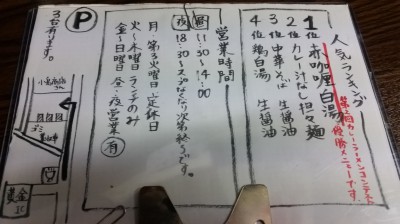 人気ランキング
1位 赤咖喱白湯
第1回カレーラーメンコンテスト
優勝メニューです。
2位 カレー汁なし担々麺
3位 中華そば 生醤油
4位 鶏白湯 生醤油
営業時間
昼 11:30〜14:00
夜 18:30〜スープなくなり次第終了です。
月、第3火曜日定休日
火〜木曜日 ランチのみ
金〜日曜日 昼・夜営業
有
P
3台有ります。
黄金